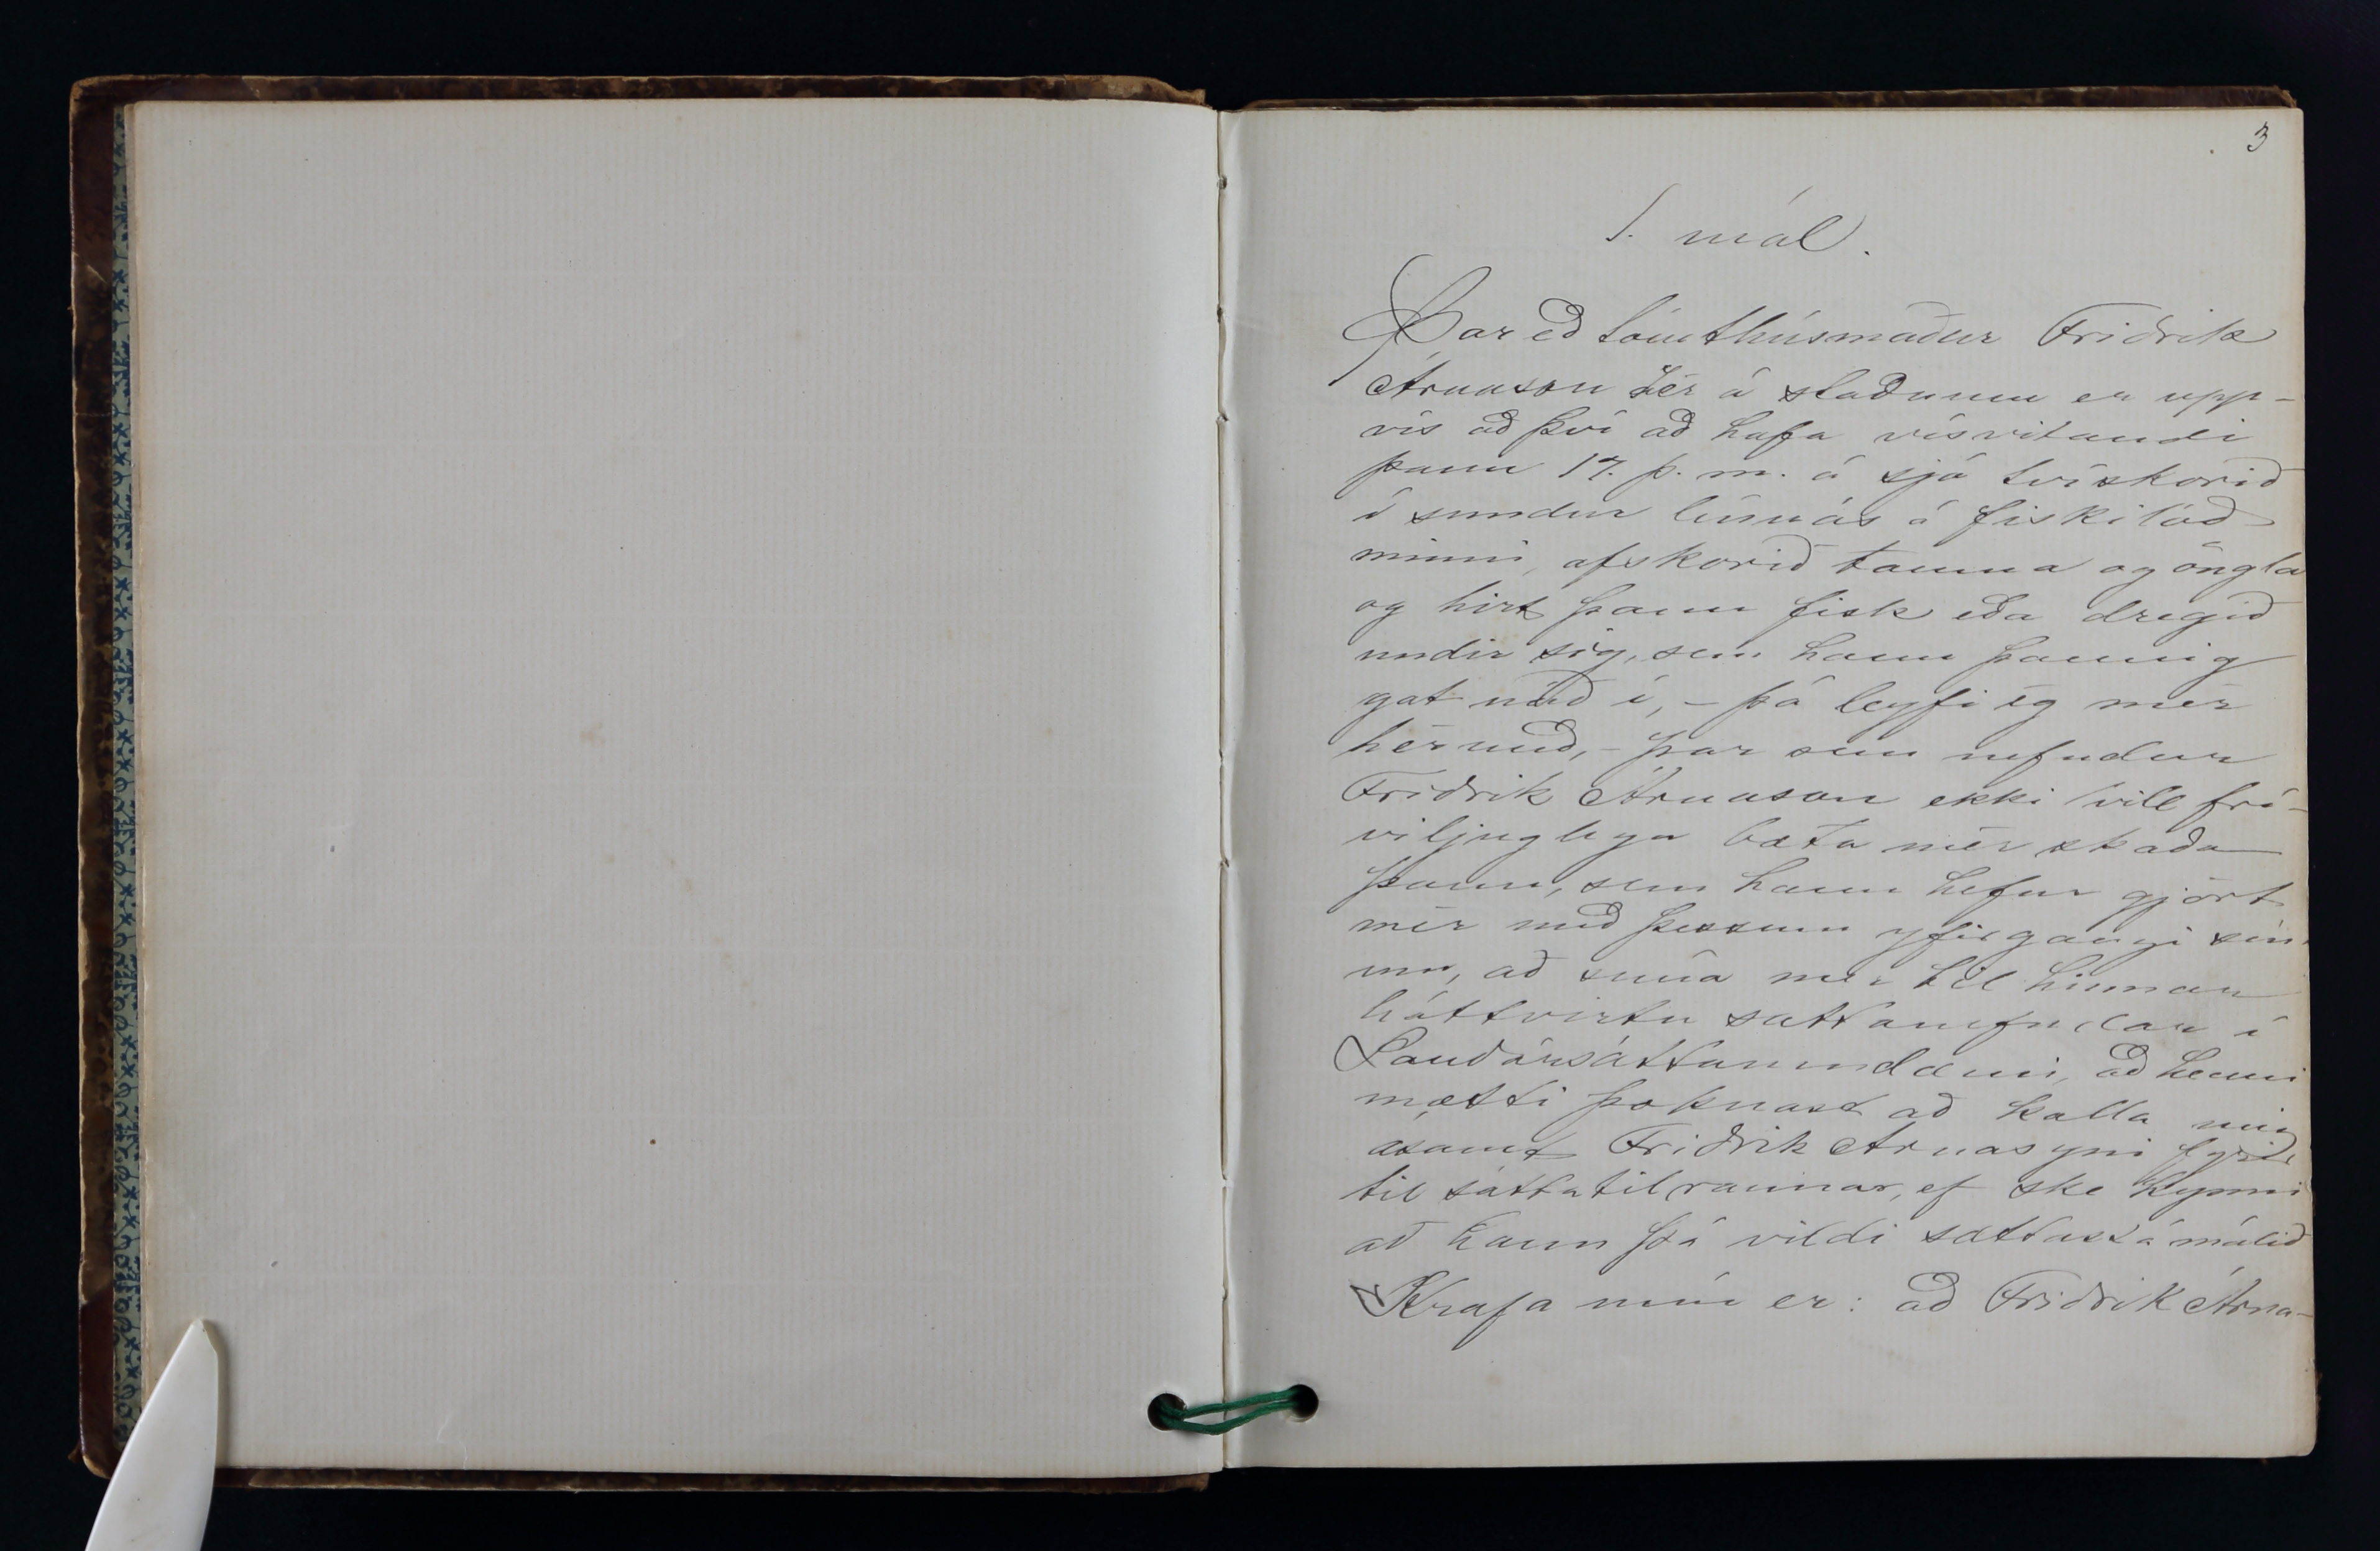 3
1. mál.
Þar eð tómthúsmaður Friðrik
Árnason hér á staðnum er upp-
vís að því að hafa vísvitandi
þann 17. þ. m. á sjó tvískorið
í sundur línuás á fiskilóð
minni, afskorið tauma og öngla
og hirt þann fisk eða dregið
undir sig, sem hann þannig
gat náð í, - þá leyfi ég mér
hérmeð, - þar sem nefndur
Friðrik Árnason ekki vill frí-
viljuglega bæta mér skaða
þann, sem hann hefur gjört
mér með þessum yfirgangi sín-
um, að snúa mér til hinnar
háttvirtu sáttanefndar í
Sauðársáttaumdæmi, að henni
mætti þóknast að kalla mig
ásamt Friðrik Árnasyni fyrir
til sáttatilraunar, ef ske kynni
að hann þá vildi sættast á málið
Krafa mín er: að Friðrik Árna-